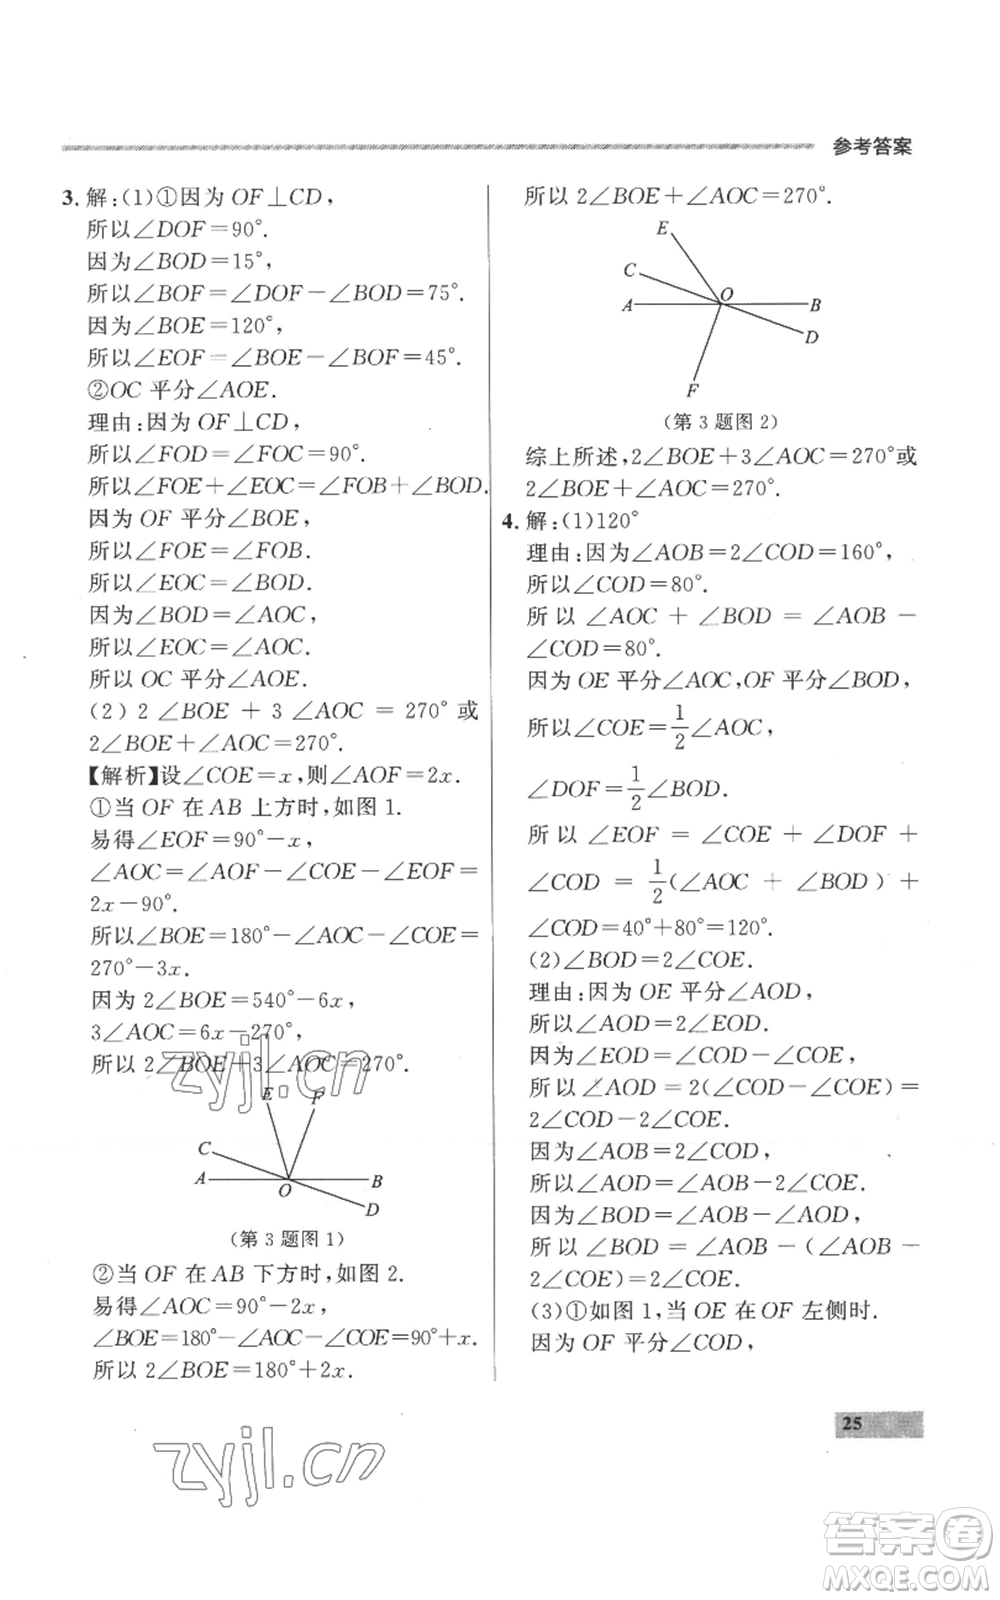 参考答案
3. 解:(1)①因为 OF⊥CD,
所以∠DOF=90°.
因为∠BOD=15°,
所以∠BOF=∠DOF-∠BOD=75°.
因为∠BOE=120°,
所以∠EOF=∠BOE-∠BOF=45°.
②OC 平分∠AOE.
理由:因为 OF⊥CD,
所以∠FOD=∠FOC=90°.
所以∠FOE+∠EOC=∠FOB+∠BOD.
因为 OF 平分∠BOE,
所以∠FOE=∠FOB.
所以∠EOC=∠BOD.
因为∠BOD=∠AOC,
所以∠EOC=∠AOC.
所以 OC 平分∠AOE.
(2) 2 ∠BOE + 3 ∠AOC = 270° 或
2∠BOE+∠AOC=270°.
【解析】设∠COE=x,则∠AOF=2x.
①当 OF 在 AB 上方时,如图 1.
易得∠EOF=90°-x,
∠AOC=∠AOF-∠COE-∠EOF=
2x-90°.
所以∠BOE=180°-∠AOC-∠COE=
270°-3x.
因为 2∠BOE=540°-6x,
3∠AOC=6x-270°,
所以 2∠BOE+3∠AOC=270°.
E F
C
A O B
D
(第 3 题图 1)
②当 OF 在 AB 下方时,如图 2.
易得∠AOC=90°-2x,
∠BOE=180°-∠AOC-∠COE=90°+x.
所以 2∠BOE=180°+2x.
所以 2∠BOE+∠AOC=270°.
E
C
A O B
D
F
(第 3 题图 2)
综上所述,2∠BOE+3∠AOC=270°或
2∠BOE+∠AOC=270°.
4. 解:(1)120°
理由:因为∠AOB=2∠COD=160°,
所以∠COD=80°.
所以 ∠AOC + ∠BOD = ∠AOB -
∠COD=80°.
因为 OE 平分∠AOC,OF 平分∠BOD,
所以∠COE=1/2∠AOC,
∠DOF=1/2∠BOD.
所以 ∠EOF = ∠COE + ∠DOF +
∠COD = 1/2(∠AOC + ∠BOD) +
∠COD=40°+80°=120°.
(2)∠BOD=2∠COE.
理由:因为 OE 平分∠AOD,
所以∠AOD=2∠EOD.
因为∠EOD=∠COD-∠COE,
所以∠AOD=2(∠COD-∠COE)=
2∠COD-2∠COE.
因为∠AOB=2∠COD,
所以∠AOD=∠AOB-2∠COE.
因为∠BOD=∠AOB-∠AOD,
所以 ∠BOD = ∠AOB - (∠AOB -
2∠COE)=2∠COE.
(3)①如图 1,当 OE 在 OF 左侧时.
因为 OF 平分∠COD,
25
zyjl.cn
zyjl.cn
答案圈
MXQE.COM